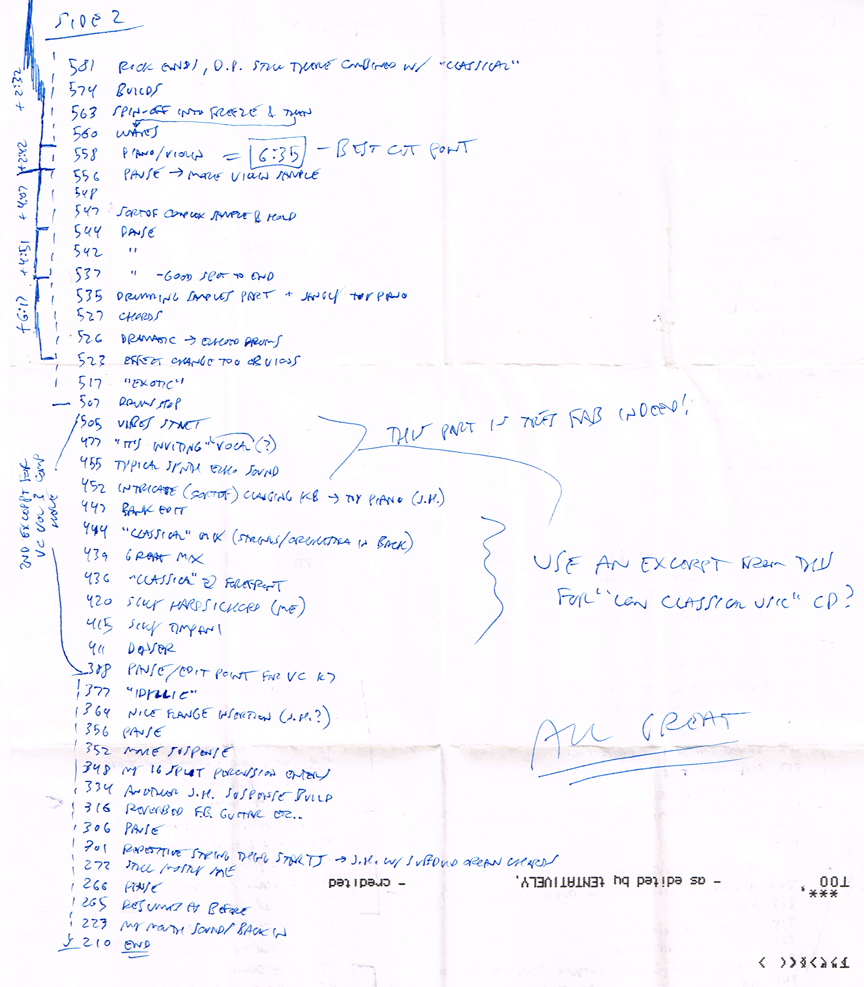 SIDE 2
581 RICK ENDS, D.P. STILL THERE COMBINED W/ "CLASSICAL"
574 BUILDS
563 SPIN-OFF INTO FREEZE & THEN
560 WAVES
558 PIANO/VIOLIN = 6:35 - BEST CUT POINT
556 PAUSE → MORE VIOLIN SAMPLE
548
547 SORTOF COMPLEX SAMPLE & HOLD
544 PAUSE
542 "
537 " - GOOD SPOT TO END
535 DRUMMING SAMPLES PART + JANGLY TOY PIANO
527 CHORDS
526 DRAMATIC → ECHOED DRUMS
523 EFFECT CHANGE TOO OBVIOUS
517 "EXOTIC"
507 DRUMS STOP
505 VIBES START
477 "IT'S INVITING" VOCAL (?)
455 TYPICAL SYNTH ECHO SOUND
452 INTRICATE (SORTOF) CLANGING KB → TOY PIANO (J.H.)
447 BANK EDIT
444 "CLASSICAL" MIX (STRINGS/ORCHESTRA IN BACK)
439 GREAT MIX
436 "CLASSICAL" @ FOREFRONT
420 SILLY HARPSICHORD (ME)
415 SILLY TIMPANI
411 DENSER
388 PAUSE/EDIT POINT FOR VC K7
377 "IDYLLIC"
364 NICE FLANGE INSERTION (J.H.?)
356 PAUSE
352 MORE SUSPENSE
348 MY 16 SPLIT PERCUSSION ENTERS
334 ANOTHER J.H. SUSPENSE BUILD
316 REVERBED F.B. GUITAR ETC..
306 PAUSE
301 REPETITIVE STRING THING STARTS → J.H. W/ SUBDUED ORGAN CHORDS
272 STILL MOSTLY ME
266 PAUSE
265 RESUMES AS BEFORE
223 MY MOUTH SOUNDS BACK IN
210 END
+ 2:32
+ 2:42
+ 4:07
+ 4:51
+ 6:17
2ND EXCERPT FOR
VC VOL 3 COMP
THIS PART IS TRÈS FAB INDEED!
USE AN EXCERPT FROM THIS
FOR "LOW CLASSICAL USIC" CD?
ALL GREAT
- as edited by tENTATIVELY,
- credited
TOO
***,